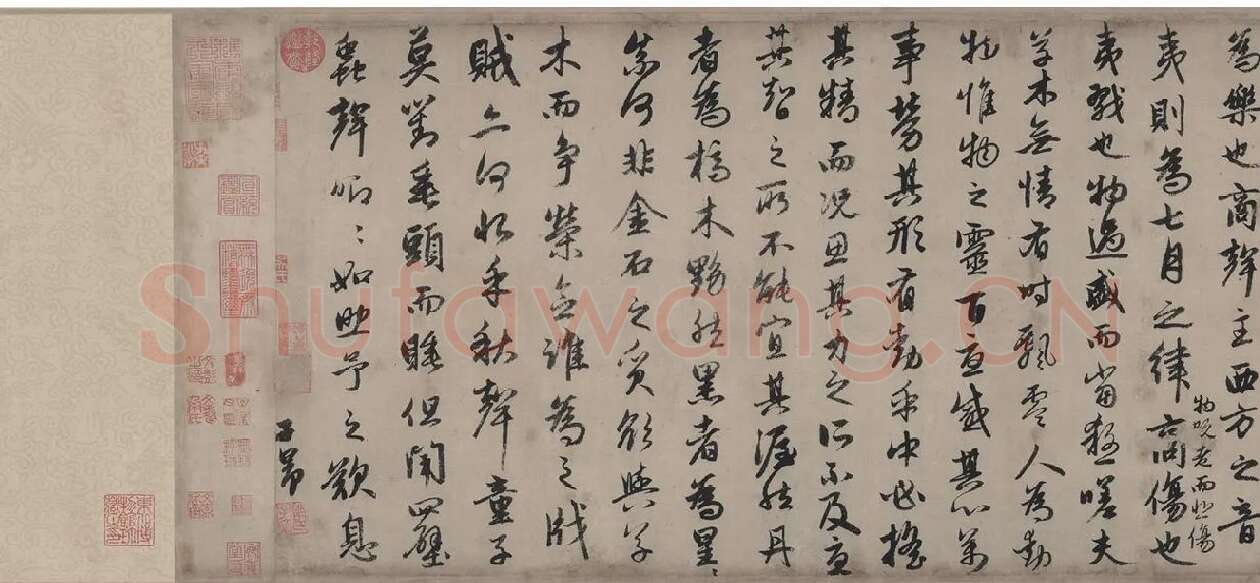 為樂也商聲主西方之音
夷則為七月之律商傷也
物既老而悲傷
夷戮也物過盛而當殺嗟夫
草木無情有時飄零人為動
物惟物之靈百憂感其心萬
事勞其形有動乎中必搖
其精而況思其力之所不及憂
其智之所不能宜其渥然丹
者為槁木黟然黑者為星〻
奈何非金石之質欲與草
木而爭榮念誰為之戕
賊亦何恨乎秋聲童子
莫對垂頭而睡但聞四壁
蟲聲唧〻如助予之歎息
子昂
Shufawang.CN